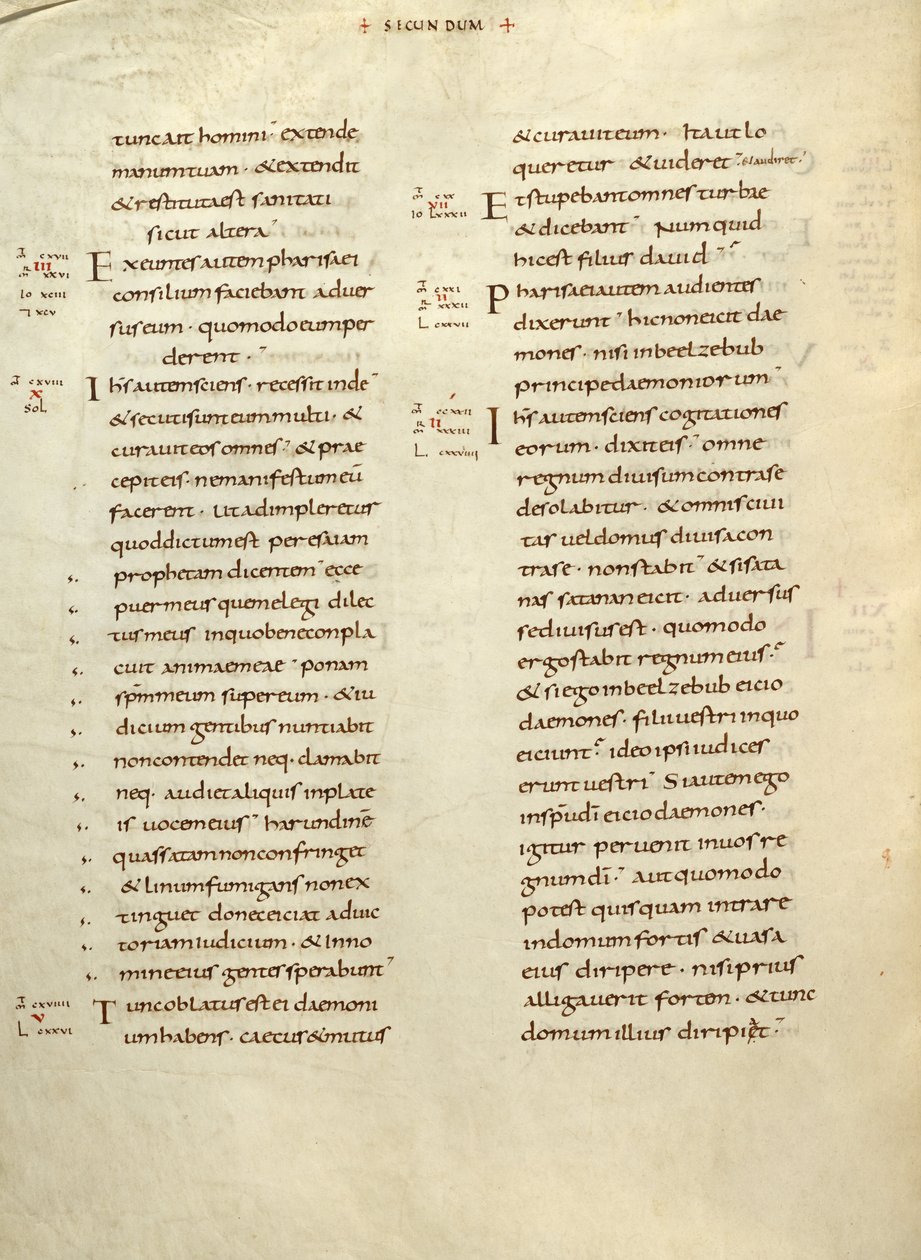 + SECUNDUM +
tunc ait homini extende
manum tuam · & extendit
& restituta est sanitati
sicut altera
m̄ cxvii
III
m̄ xxvi
Io xciii
⁊ xcv
Exeuntes autem pharisaei
consilium faciebant adver
sus eum · quomodo eum per
derent ·
m̄ cxviii
X
Sol
Ihs̄ autem sciens · recessit inde
& secuti sunt eum multi · &
curavit eos omnes & prae
cepit eis · ne manifestum eū
facerent · Ut adimpleretur
quod dictum est per esaiam
prophetam dicentem ecce
puer meus quem elegi dilec
tus meus in quo bene conpla
cuit animae meae ponam
spm̄ meum super eum · & iu
dicium gentibus nuntiabit
non contendet neq· clamabit
neq· audiet aliquis in plate
is vocem eius harundinē
quassatam non confringet
& linum fumigans non ex
tinguet donec eiciat ad vic
toriam iudicium · & In no
mine eius gentes sperabunt
m̄ cxviiii
V
L cxxvi
Tunc oblatus est ei daemoni
um habens · caecus & mutus
& curavit eum · Ita ut lo
queretur & videret & audiret ·
m̄ cxx
VII
Io Lxxxii
Et stupebant omnes turbae
& dicebant Numquid
hic est filius david
m̄ cxxi
II
m̄ xxxii
L cxxvii
Pharisaei autem audientes
dixerunt hic non eicit dae
mones · nisi in beelzebub
principe daemoniorum
II
m̄ xxxiii
L cxxviiii
Ihs̄ autem sciens cogitationes
eorum · dixit eis · omne
regnum divisum contra se
desolabitur · & omnis civi
tas vel domus divisa con
tra se · non stabit & si sata
nas satanan eicit · adversus
se divisus est · quomodo
ergo stabit regnum eius ·
& si ego in beelzebub eicio
daemones · filii vestri in quo
eiciunt ideo ipsi iudices
erunt vestri Si autem ego
in spū dī eicio daemones ·
igitur pervenit in vos re
gnum dī · aut quomodo
potest quisquam intrare
in domum fortis & vasa
eius diripere · nisi prius
alligaverit fortem · & tunc
domum illius diripiet ·